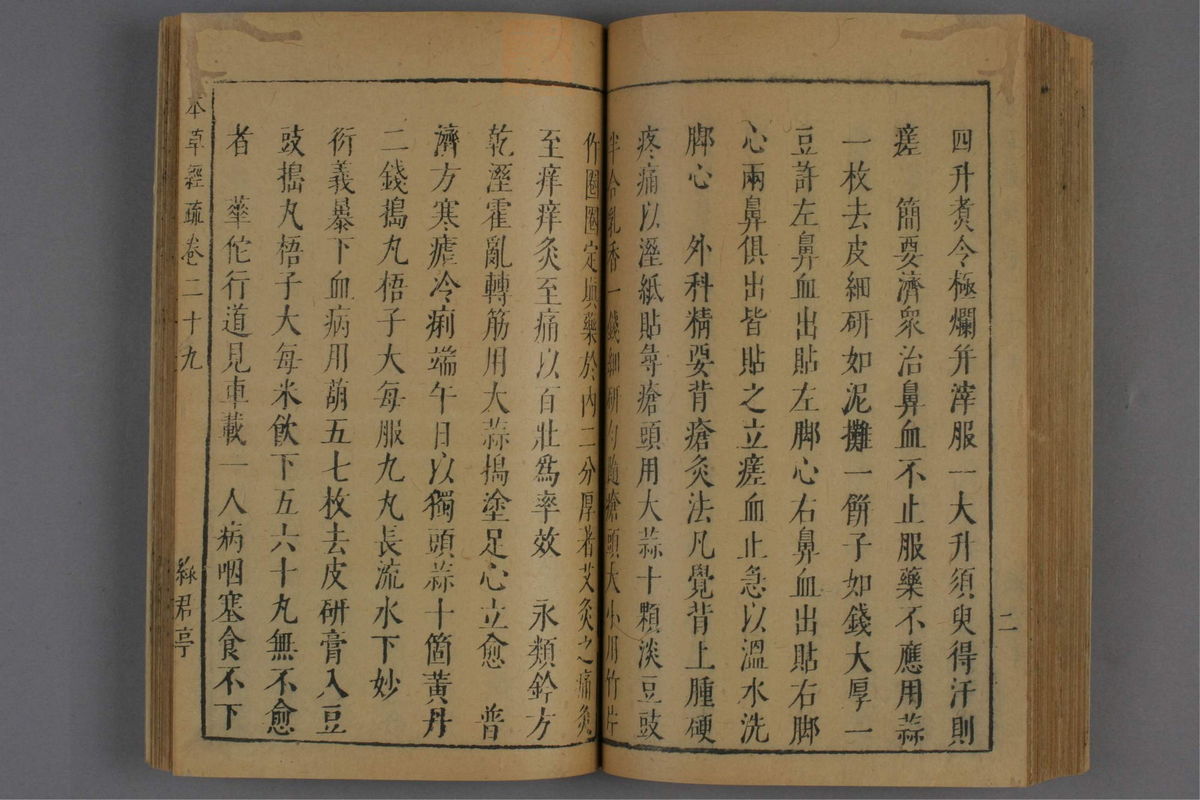 四升煮令極爛幷滓服一大升須臾得汗則
瘥　簡要濟衆治鼻血不止服藥不應用蒜
一枚去皮細研如泥攤一餠子如錢大厚一
豆許左鼻血出貼左脚心右鼻血出貼右脚
心兩鼻俱出皆貼之立瘥血止急以溫水洗
脚心　外科精要背瘡灸法凡覺背上腫硬
疼痛以溼紙貼尋瘡頭用大蒜十顆淡豆豉
半合乳香一錢細研勻隨瘡頭大小用竹片
作圈圍定塡藥於內二分厚著艾灸之痛灸
至痒痒灸至痛以百壯爲率效　永類鈐方
乾溼霍亂轉筋用大蒜搗塗足心立愈　普
濟方寒瘧冷痢端午日以獨頭蒜十箇黃丹
二錢搗丸梧子大每服九丸長流水下妙
衍義暴下血病用葫五七枚去皮硏膏入豆
豉搗丸梧子大每米飮下五六十丸無不愈
者　華佗行道見車載一人病咽塞食不下
二
本草經疏卷二十九
綠君亭